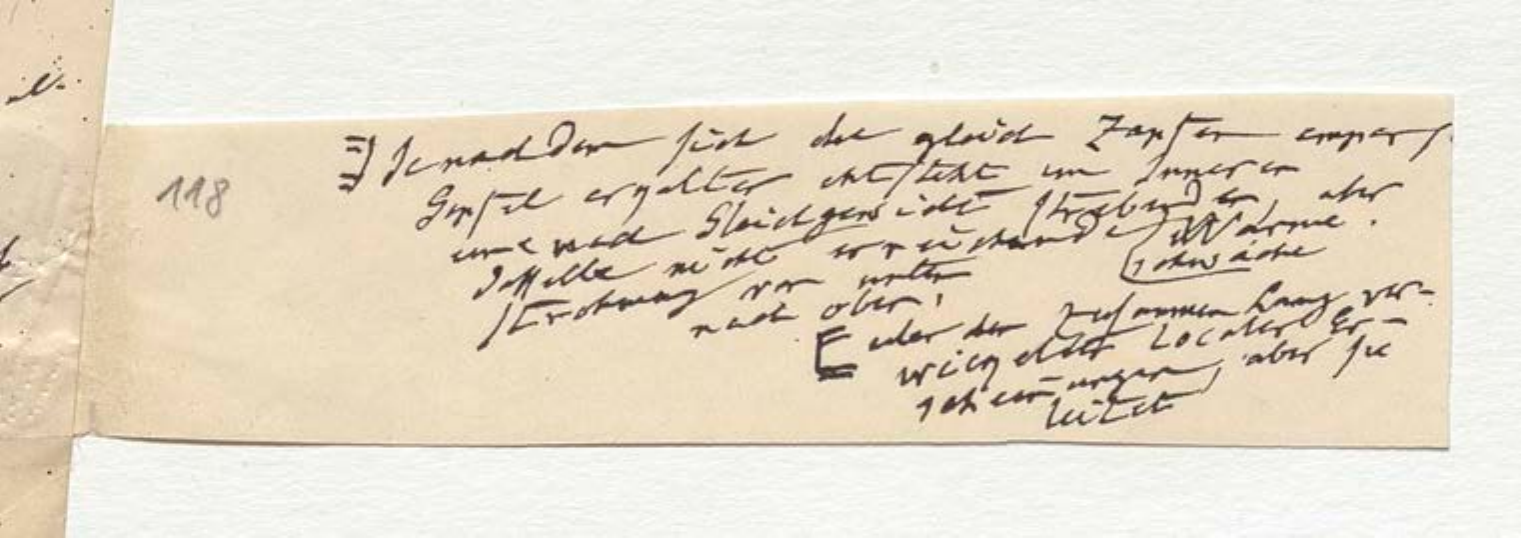 118
Je nachdem sich die gleich Zapfen empor
Gipfel erkalten entsteht im Inneren
eine nach Gleichgewicht strebende, aber
dasselbe nicht erreichende Wärme.
schwäche
strömung von unten
nach oben.
der Zusammenhang ver-
wickelter Localer Er-
scheinungen, aber sie
leitet